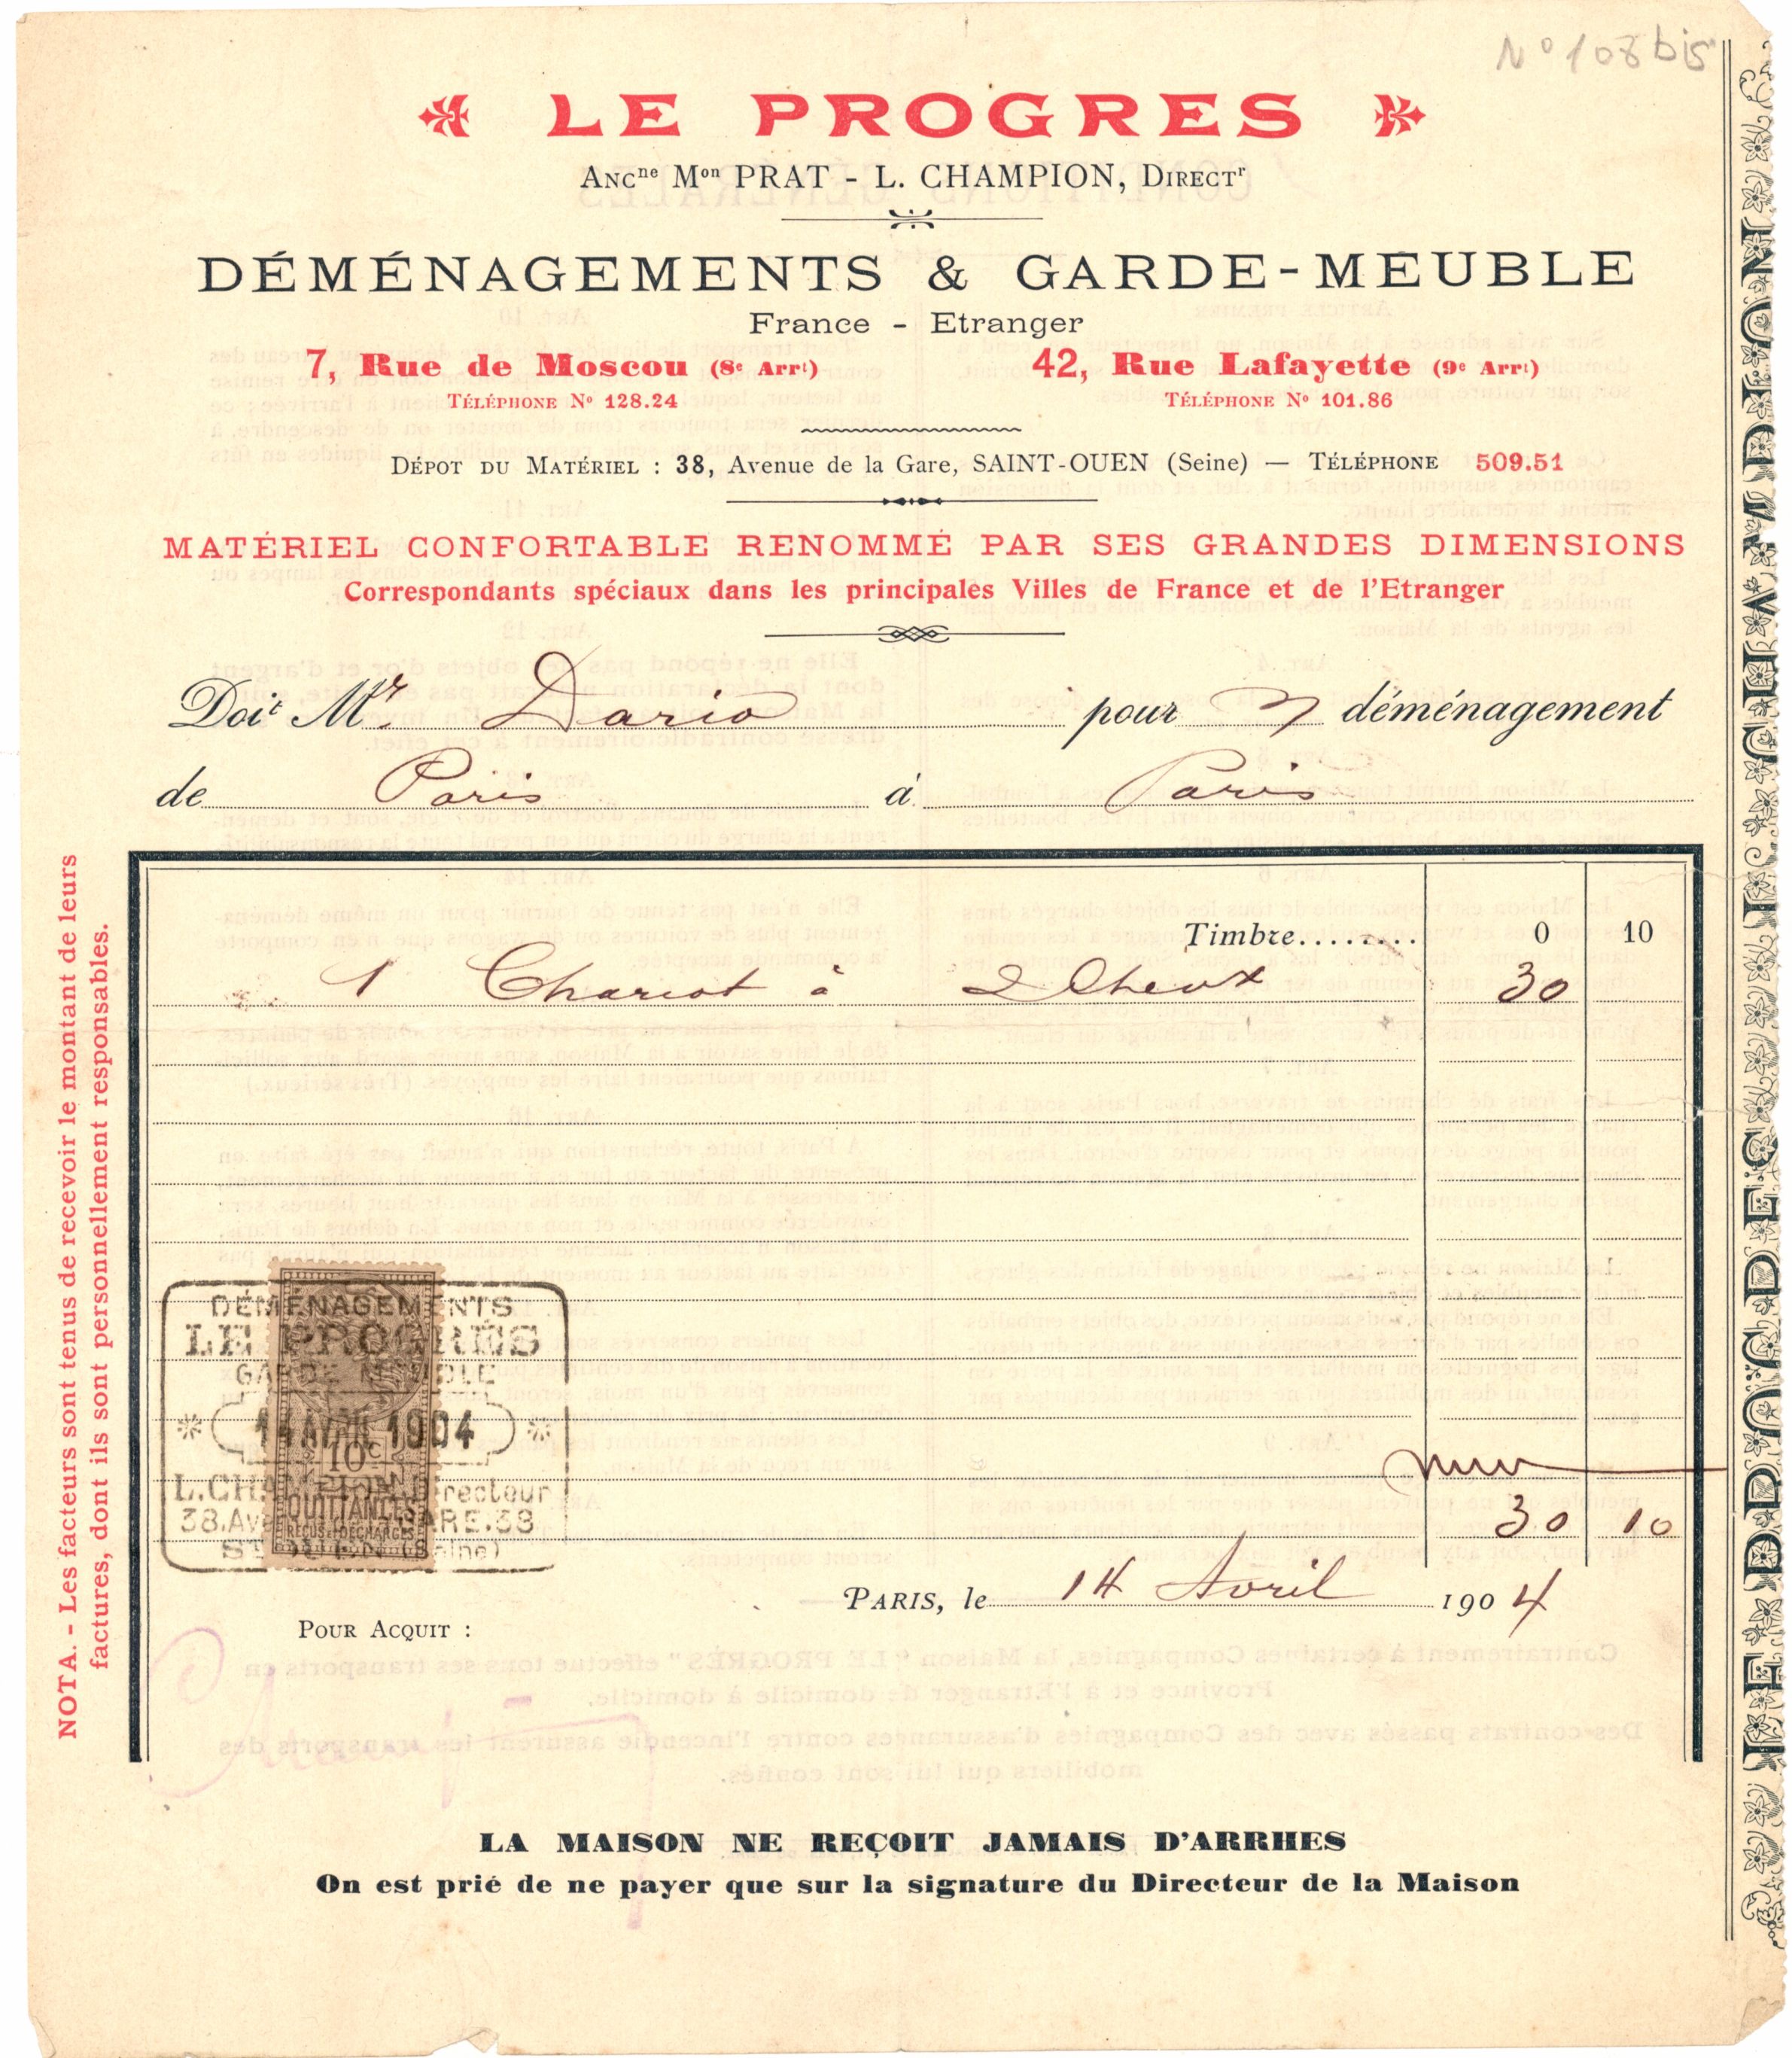 N° 108 bis
LE PROGRES
ANCne Mon PRAT - L. CHAMPION, DIRECTr
DÉMÉNAGEMENTS & GARDE-MEUBLE
France - Etranger
7, Rue de Moscou (8e Arrt)
TÉLÉPHONE No 128.24
42, Rue Lafayette (9e Arrt)
TÉLÉPHONE No 101.86
DÉPOT DU MATÉRIEL : 38, Avenue de la Gare, SAINT-OUEN (Seine) — TÉLÉPHONE 509.51
MATÉRIEL CONFORTABLE RENOMMÉ PAR SES GRANDES DIMENSIONS
Correspondants spéciaux dans les principales Villes de France et de l'Etranger
Doit Mr Dario pour déménagement
de Paris à Paris
Timbre........ 0 10
1 Chariot à 2 Chevx 30
30 10
PARIS, le 14 Avril 1904
POUR ACQUIT :
DÉMÉNAGEMENTS
LE PROGRÈS
GARDE MEUBLE
14 AVR 1904
L. CHAMPION Directeur
38. Ave GARE. 38
ST OUEN (Seine)
10c
QUITTANCES
REÇUS et DÉCHARGES
NOTA. - Les facteurs sont tenus de recevoir le montant de leurs
factures, dont ils sont personnellement responsables.
LA MAISON NE REÇOIT JAMAIS D'ARRHES
On est prié de ne payer que sur la signature du Directeur de la Maison